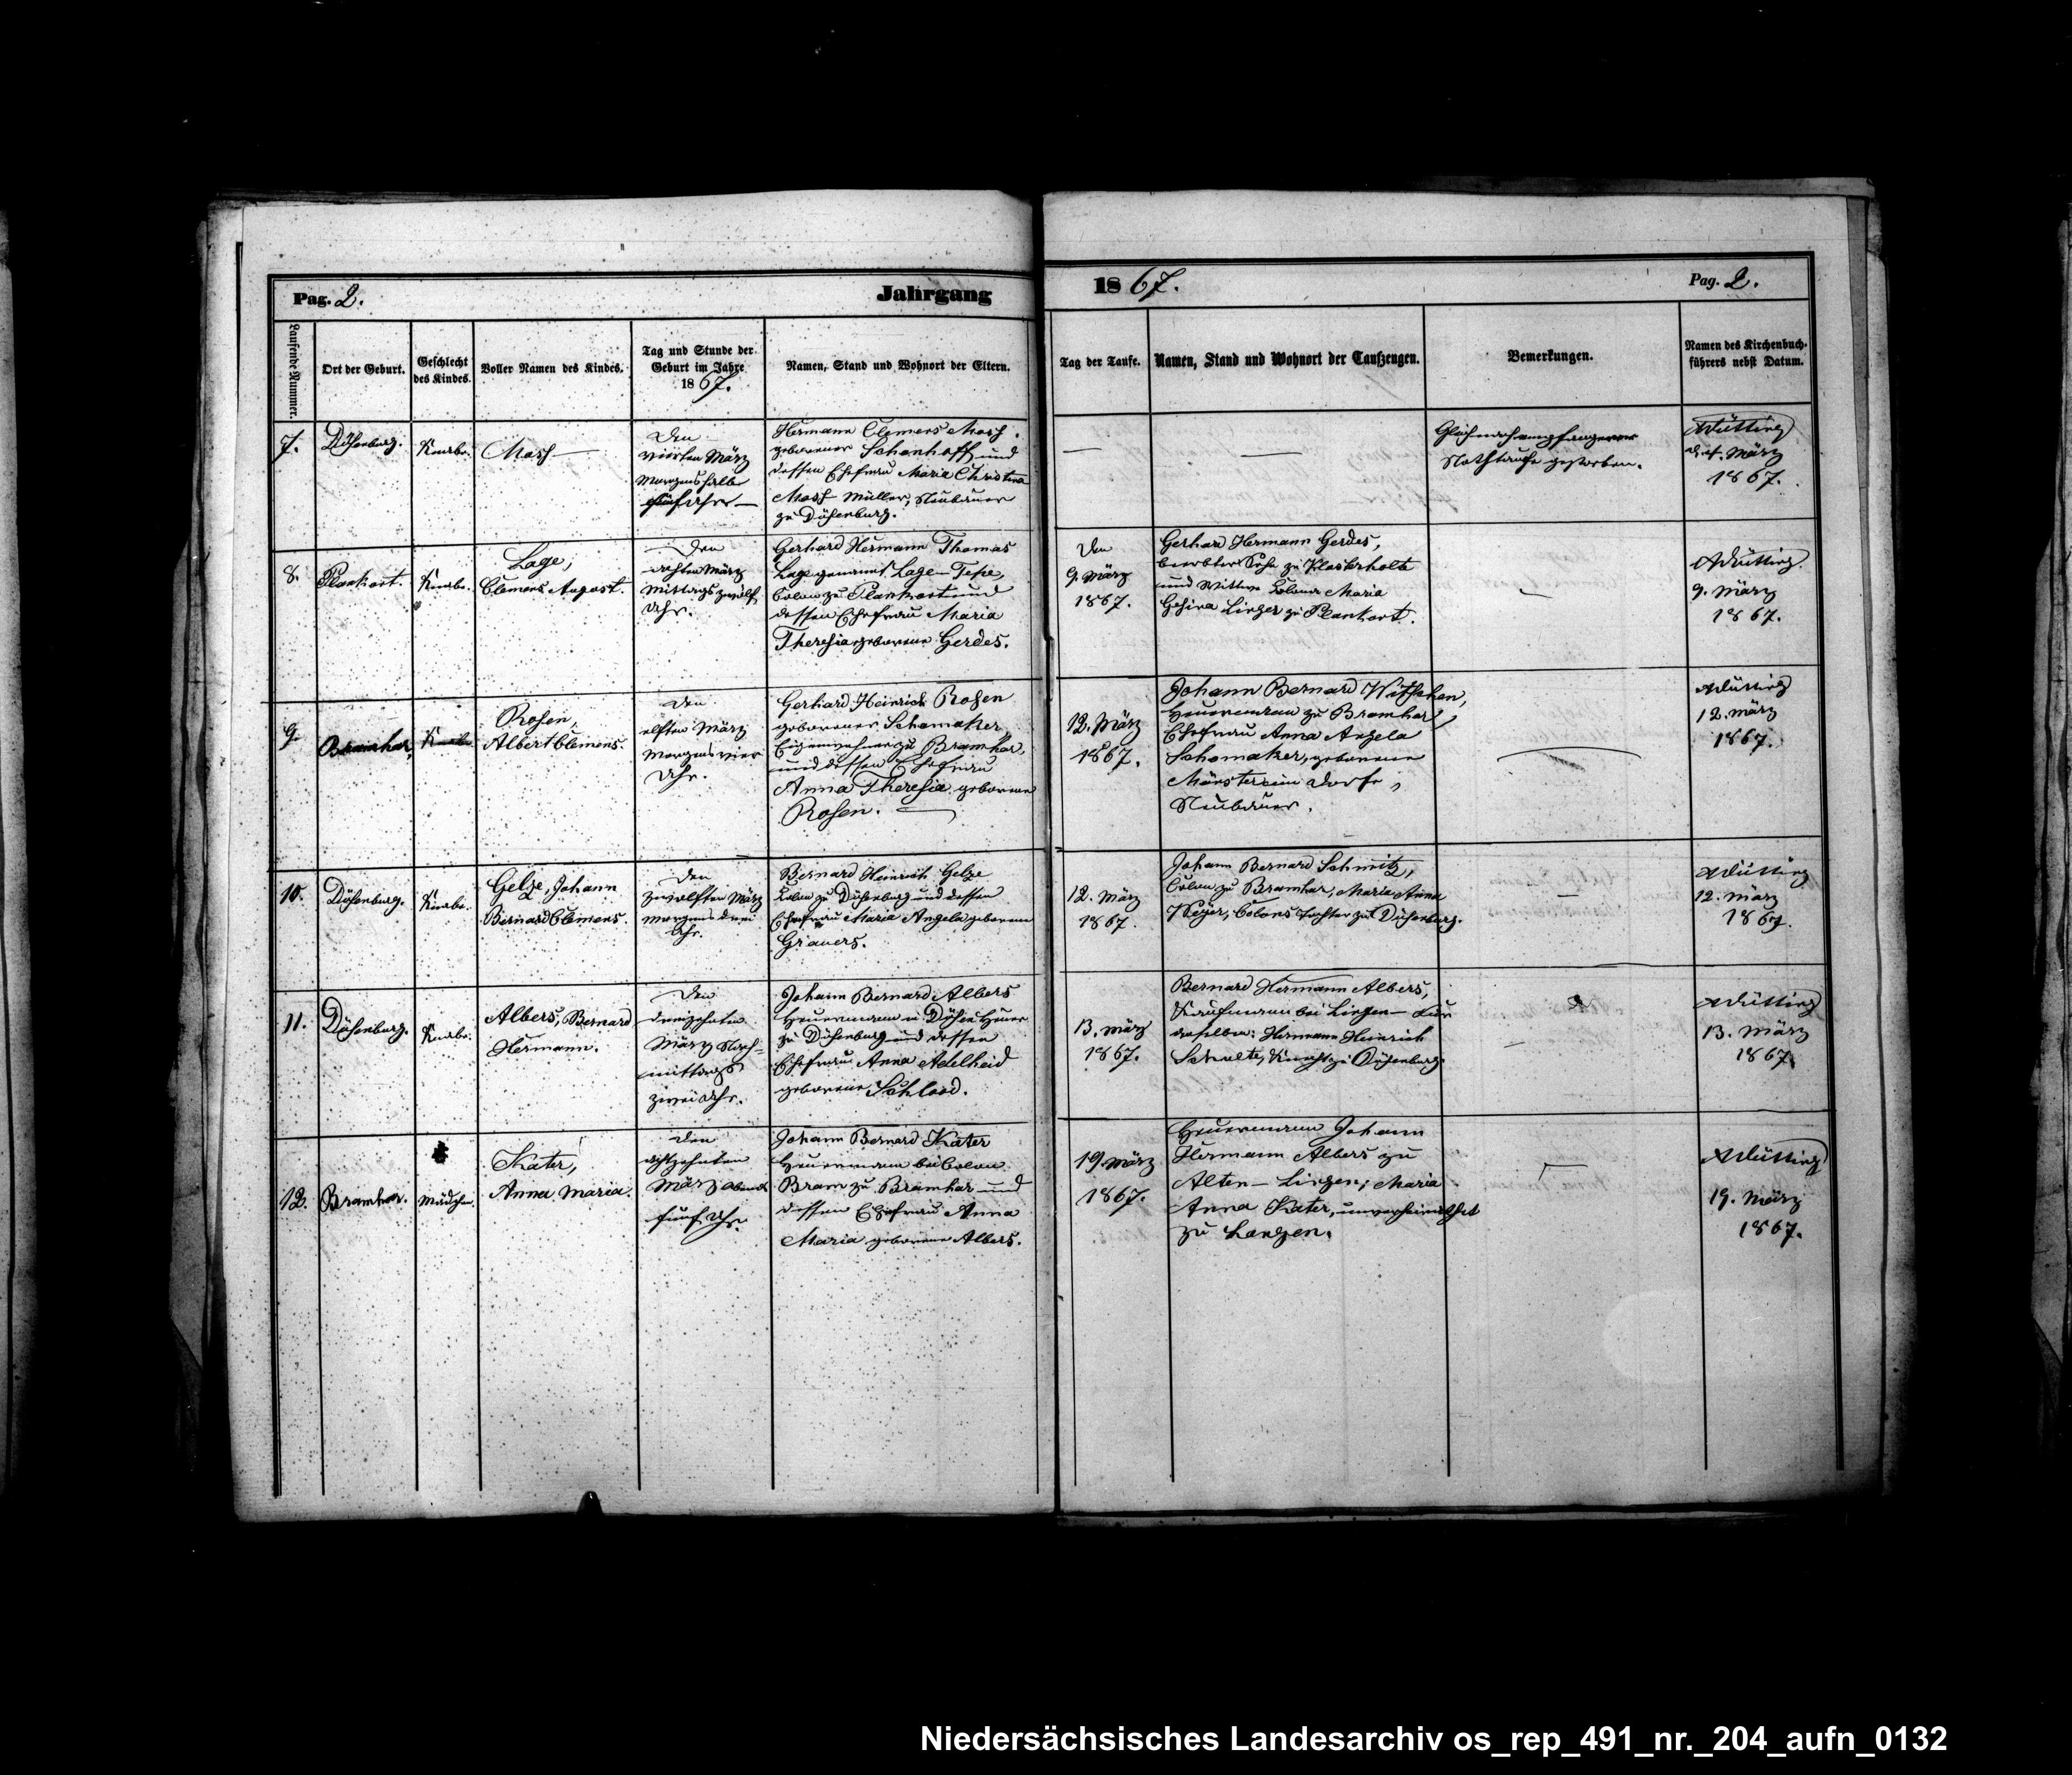 Pag. 2.
Jahrgang
1867.
Pag. 2.
Laufende Nummer.
Ort der Geburt.
Geschlecht
des Kindes.
Voller Namen des Kindes.
Tag und Stunde der
Geburt im Jahre
1867.
Namen, Stand und Wohnort der Eltern.
Tag der Taufe.
Namen, Stand und Wohnort der Taufzeugen.
Bemerkungen.
Namen des Kirchenbuch-
führers nebst Datum.
7.
Knabe.
den
vierten März
Morgens halb
fünf Uhr —
Hermann Clemens
geborener Schonhoff und
dessen Ehefrau Maria Christina
Müller, Neubauer
zu
—
—
Gleich nach empfangener
Nothtaufe gestorben.
März
1867.
8.
Plankort.
Knabe.
Lage,
Clemens August.
Den
achten März
Mittags zwölf
Uhr.
Gerhard Hermann Thomas
Lage genannt Lage-Tepe,
Colon zu Plankort und
dessen Ehefrau Maria
Theresia geborene Gerdes.
den
9. März
1867.
Gerhard Hermann Gerdes,
zu Klosterholte
und Wittwe Maria
Gesina zu Plankort.
—
9. März
1867.
9.
Bramhar,
Knabe
Rosen,
Albert Clemens.
den
elften März
Morgens vier
Uhr.
Gerhard Heinrich Rosen
geborener Schomaker
Eigenwohner zu Bramhar,
und dessen Ehefrau
Anna Theresia geborene
Rosen. —
12. März
1867.
Johann Bernard
Heuermann zu Bramhar,
Ehefrau Anna Angela
Schomaker, geborene
Dorfe,
Neubauer.
—
12. März
1867.
10.
Knabe.
Gelze, Johann
Bernard Clemens.
den
zwölften März
morgens drei
Uhr.
Bernard Heinrich Gelze
Colon zu und dessen
Ehefrau Maria Angela geborene
Grauers.
12. März
1867.
Johann Bernard Schmitz,
Colon zu Bramhar, Maria Anna
Colons Tochter zu
—
12. März
1867.
11.
Knabe.
Albers, Bernard
Hermann.
den
dreizehnten
März Nach-
mittags
zwei Uhr.
Johann Bernard Albers
Heuermann in
zu und dessen
Ehefrau Anna Adelheid
geborene
13. März
1867.
Bernard Hermann Albers,
Kaufmann bei Lingen — für
denselben: Hermann Heinrich
Schulte, Knecht zu
—
13. März
1867.
12.
Bramhar.
Mädchen
Kater,
Anna Maria.
den
achtzehnten
März Abends
fünf Uhr.
Johann Bernard Kater
Heuermann bei Colon
Bram zu Bramhar und
dessen Ehefrau Anna
Maria geborene Albers.
19. März
1867.
Heuermann Johann
Hermann Albers zu
Alten-Lingen; Maria
Anna Kater, unverheirathet
zu Langen.
—
19. März
1867.
Niedersächsisches Landesarchiv os_rep_491_nr._204_aufn_0132